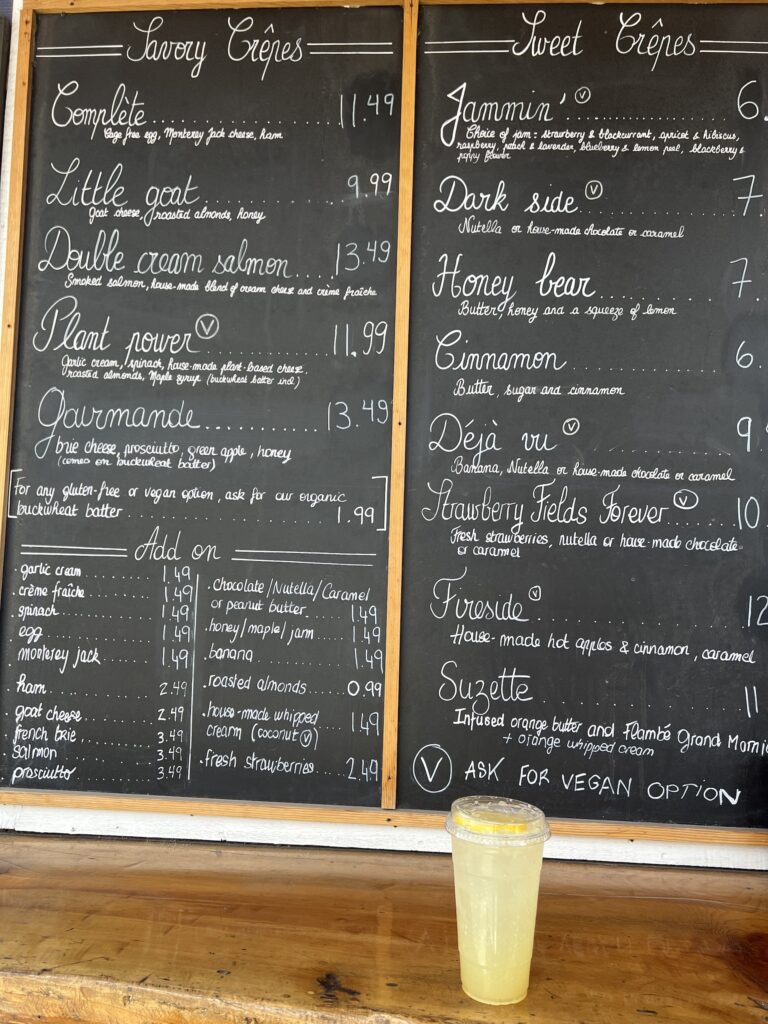 Savory Crêpes
Complète.................11.49
Cage free egg, Monterey Jack cheese, ham
Little goat...............9.99
Goat cheese, roasted almonds, honey
Double cream salmon....13.49
Smoked salmon, house-made blend of cream cheese and crème fraîche
Plant power Ⓥ...........11.99
Garlic cream, spinach, house-made plant-based cheese,
roasted almonds, Maple syrup (buckwheat batter incl)
Gourmande..........13.49
brie cheese, prosciutto, green apple, honey
(comes on buckwheat batter)
[For any gluten-free or vegan option, ask for our organic
buckwheat batter..................1.99]
Add on
.garlic cream........1.49
.crème fraîche......1.49
spinach.............1.49
.egg................1.49
.monterey jack......1.49
.ham................2.49
goat cheese.........2.49
french brie.........3.49
salmon..............3.49
prosciutto..........3.49
.chocolate/Nutella/Caramel
or peanut butter.....1.49
.honey/maple/jam....1.49
.banana.............1.49
.roasted almonds....0.99
.house-made whipped
cream (coconut Ⓥ) 1.49
.fresh strawberries....2.49
Sweet Crêpes
Jammin' Ⓥ..................6.
Choice of jam: strawberry & blackcurrant, apricot & hibiscus,
raspberry, peach & lavender, blueberry & lemon peel, blackberry &
poppy flower
Dark side Ⓥ................7
Nutella or house-made chocolate or caramel
Honey bear................7.
Butter, honey and a squeeze of lemon
Cinnamon..................6.
Butter, sugar and cinnamon
Déjà vu Ⓥ.................9.
Banana, Nutella or house-made chocolate or caramel
Strawberry Fields Forever Ⓥ....10.
Fresh strawberries, nutella or house-made chocolate
or caramel
Fireside Ⓥ................12
House-made hot apples & cinnamon, caramel
Suzette...................11
Infused orange butter and Flambé Grand Marnie
+ orange whipped cream
Ⓥ ASK FOR VEGAN OPTION